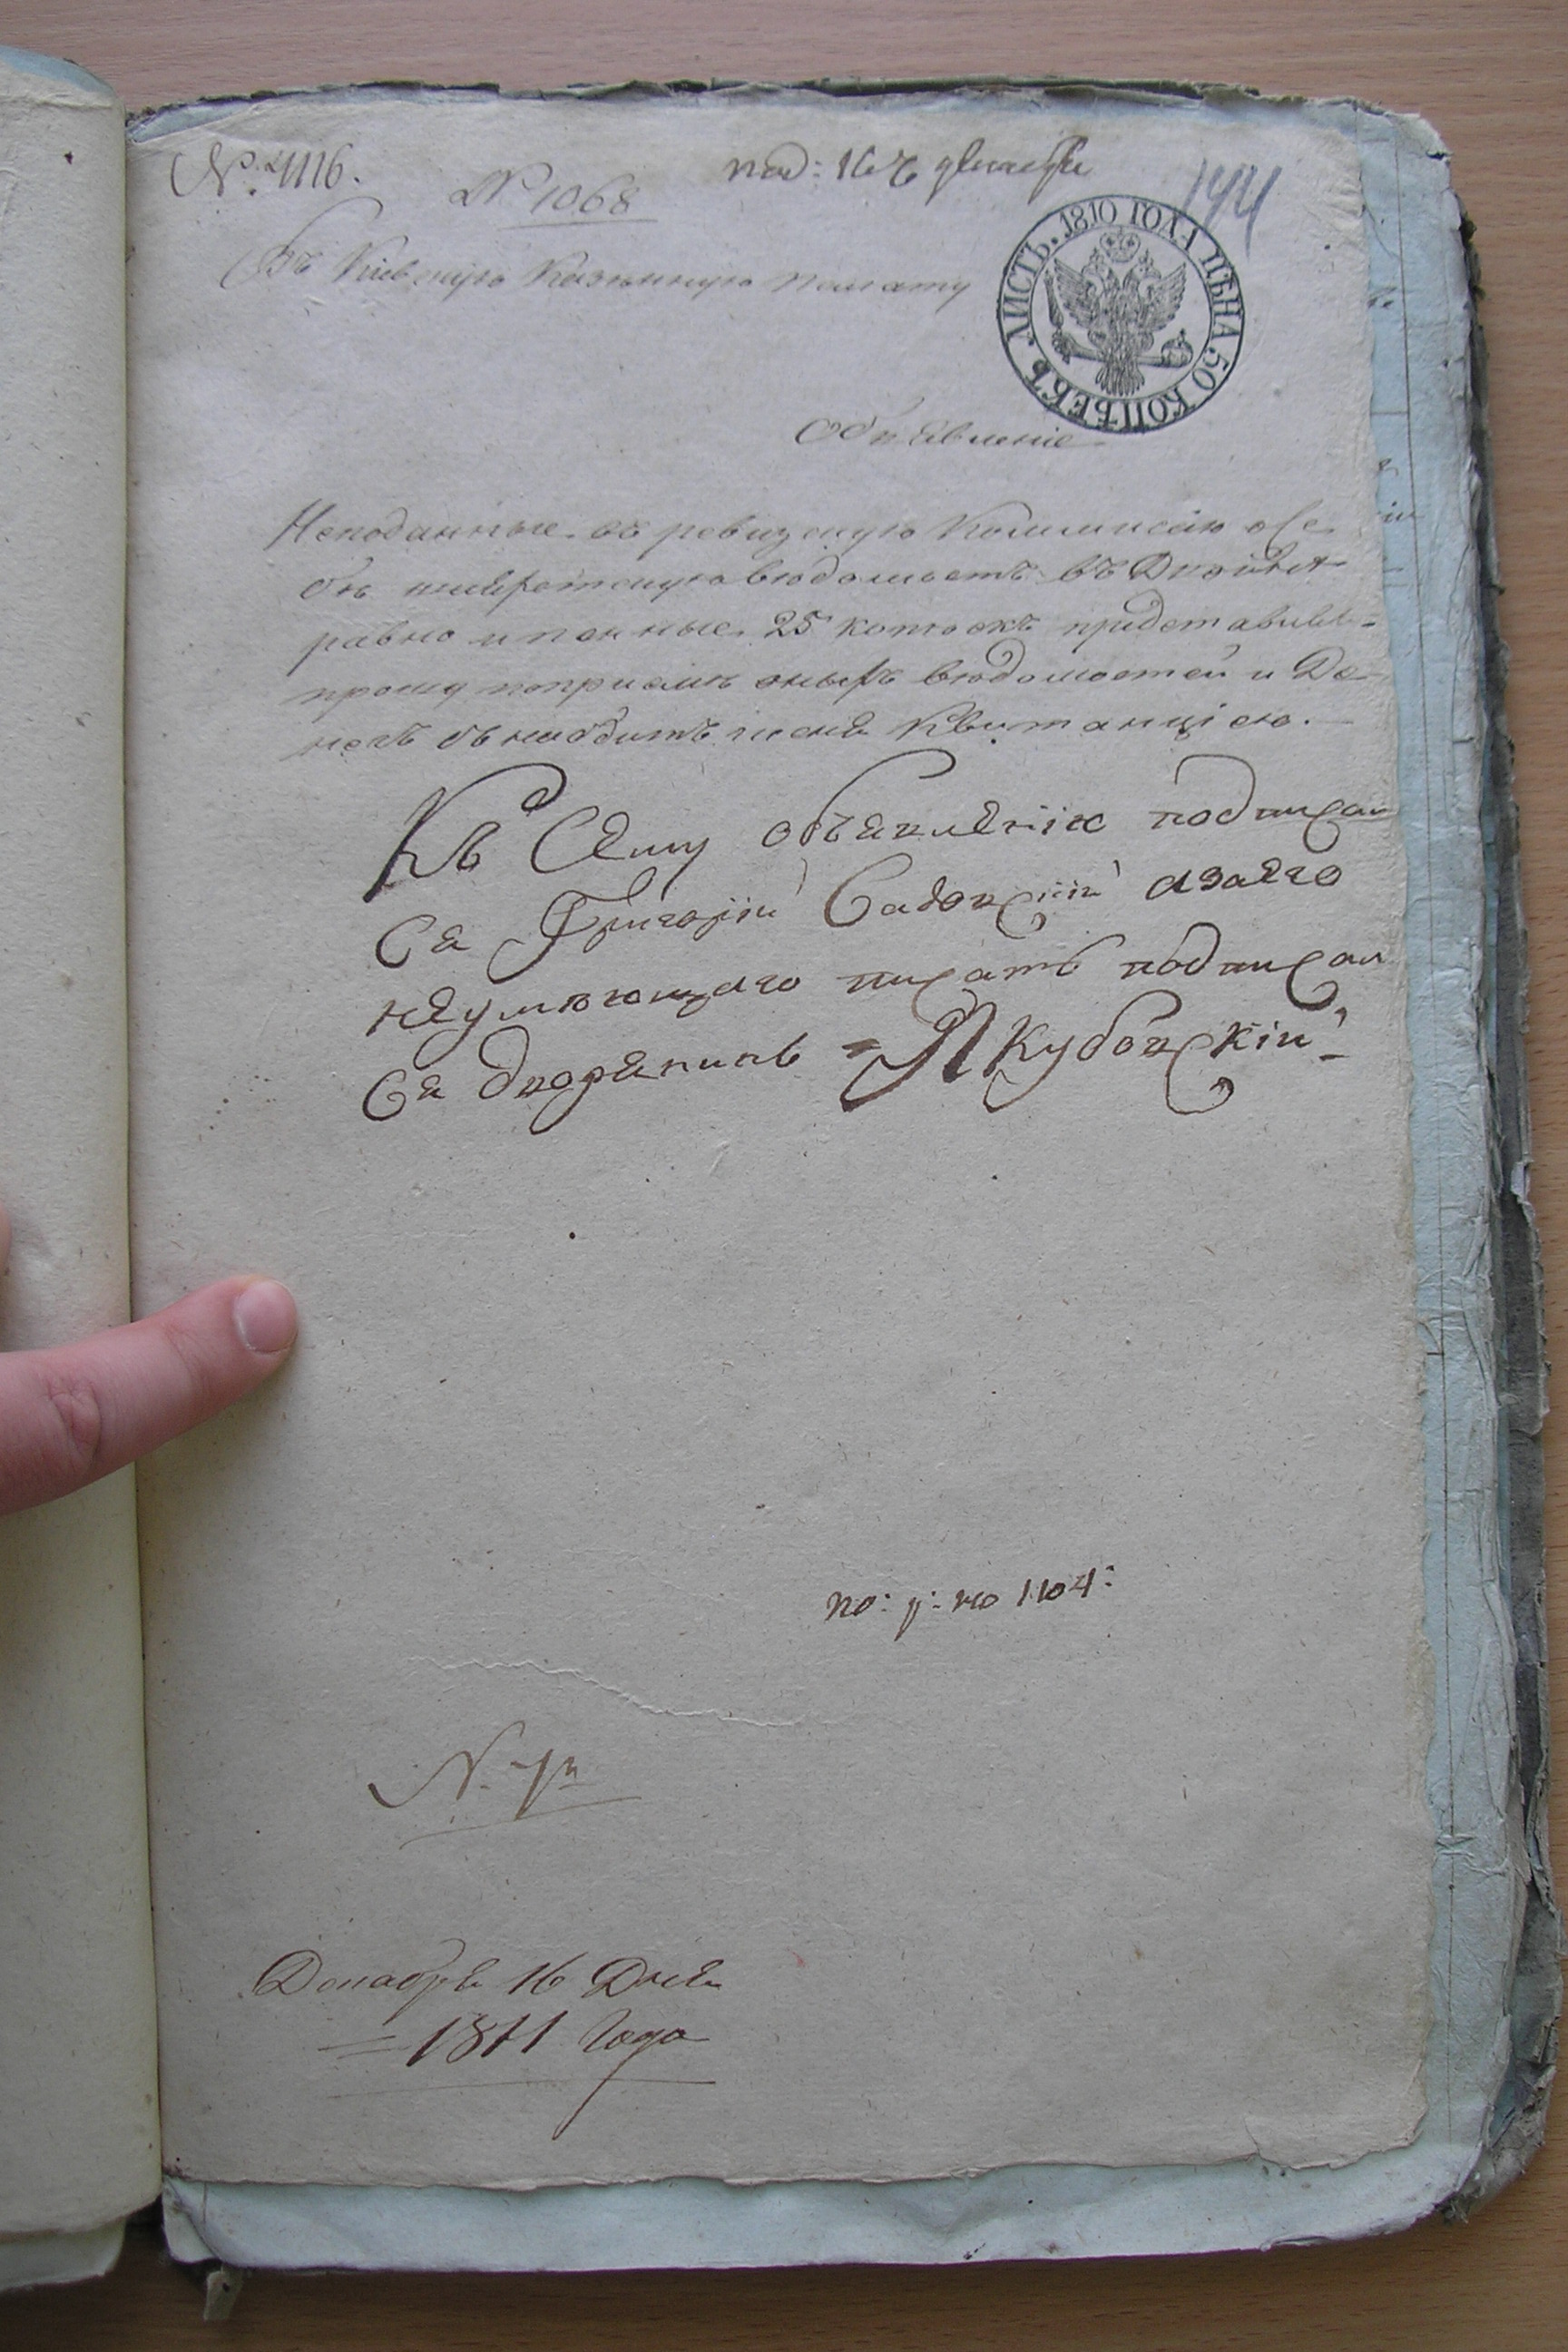 № 4116.
№ 1068
под: 16 ч декабря
144
ЛИСТЪ. 1810 ГОДА ЦѢНА 50 КОПѢЕКЪ.
Въ Кіевскую Казенную палату
Объявленіе
Неподанные въ ревизскую Коммисію о се
бѣ въдомость въ
равно и пенные 25 копѣекъ представивъ
прошу поприемѣ оныхъ вѣдомостей и Де
негъ снабдить меня Квитанціею.
Къ Сему объявленію подписал
ся Григорій Садовскій азаего
неумѣющаго писать подписал
ся дворянинъ Якубовскій
по: р: но 1104:
Декабря 16 Дня
1811 Года